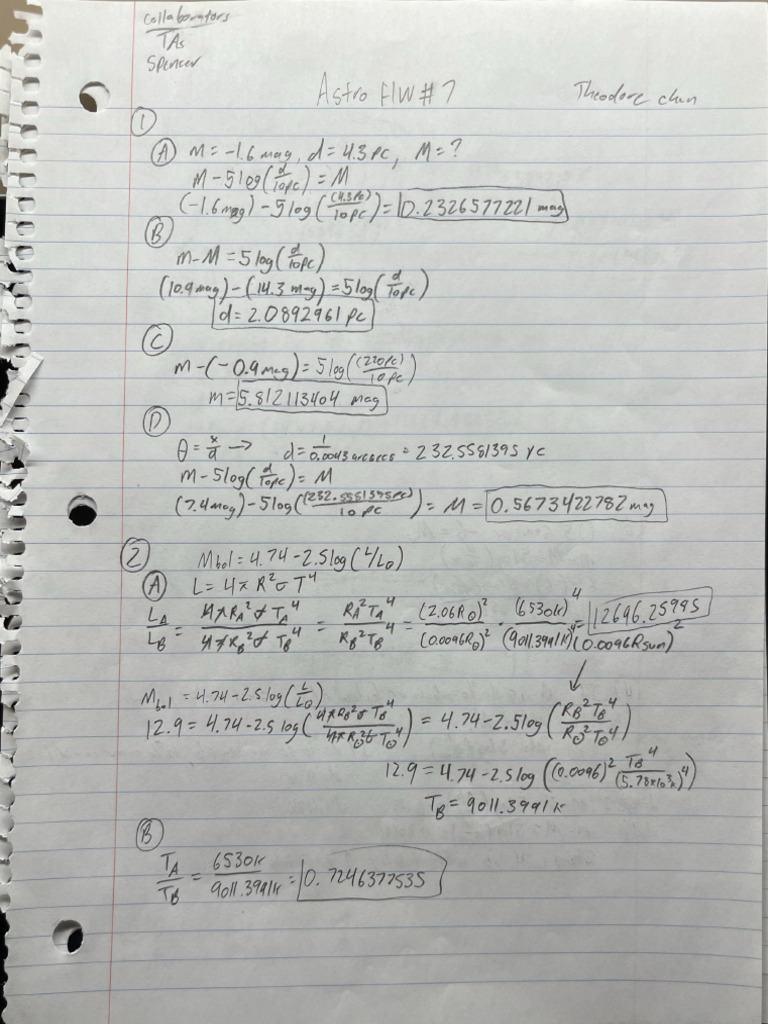 Collaborators
TAs
Spencer
Astro HW #7 Theodore
①
Ⓐ m = -1.6 mag, d = 4.3 pc, M = ?
m - 5 log(d/10pc) = M
(-1.6 mag) - 5 log((4.3 pc)/10 pc) = 0.2326577221 mag
Ⓑ
m - M = 5 log(d/10pc)
(10.9 mag) - (14.3 mag) = 5 log(d/10pc)
d = 2.0892961 pc
Ⓒ
m - (-0.9 mag) = 5 log((220pc)/10 pc)
m = 5.812113404 mag
Ⓓ
θ = x/d → d = 1/0.0043 arcsecs = 232.5581395 pc
m - 5 log(d/10pc) = M
(7.4 mag) - 5 log((232.5581395pc)/10 pc) = M = 0.5673422782 mag
② Mbol = 4.74 - 2.5 log(L/L⊙)
Ⓐ L = 4πR²σT⁴
L_A/L_B = 4πR_A²σT_A⁴/4πR_B²σT_B⁴ = R_A²T_A⁴/R_B²T_B⁴ = (2.06R⊙)²/(0.0096R⊙)² · (6530K)⁴/(9011.3991K)⁴(0.0096Rsun)² = 12696.25995
Mbol = 4.74 - 2.5 log(L/L⊙)
12.9 = 4.74 - 2.5 log(4πR_B²σT_B⁴/4πR⊙²σT⊙⁴) = 4.74 - 2.5 log(R_B²T_B⁴/R⊙²T⊙⁴)
12.9 = 4.74 - 2.5 log((0.0096)² T_B⁴/(5.78x10³K)⁴)
T_B = 9011.3991 K
Ⓑ
T_A/T_B = 6530K/9011.3991K = 0.7246377535